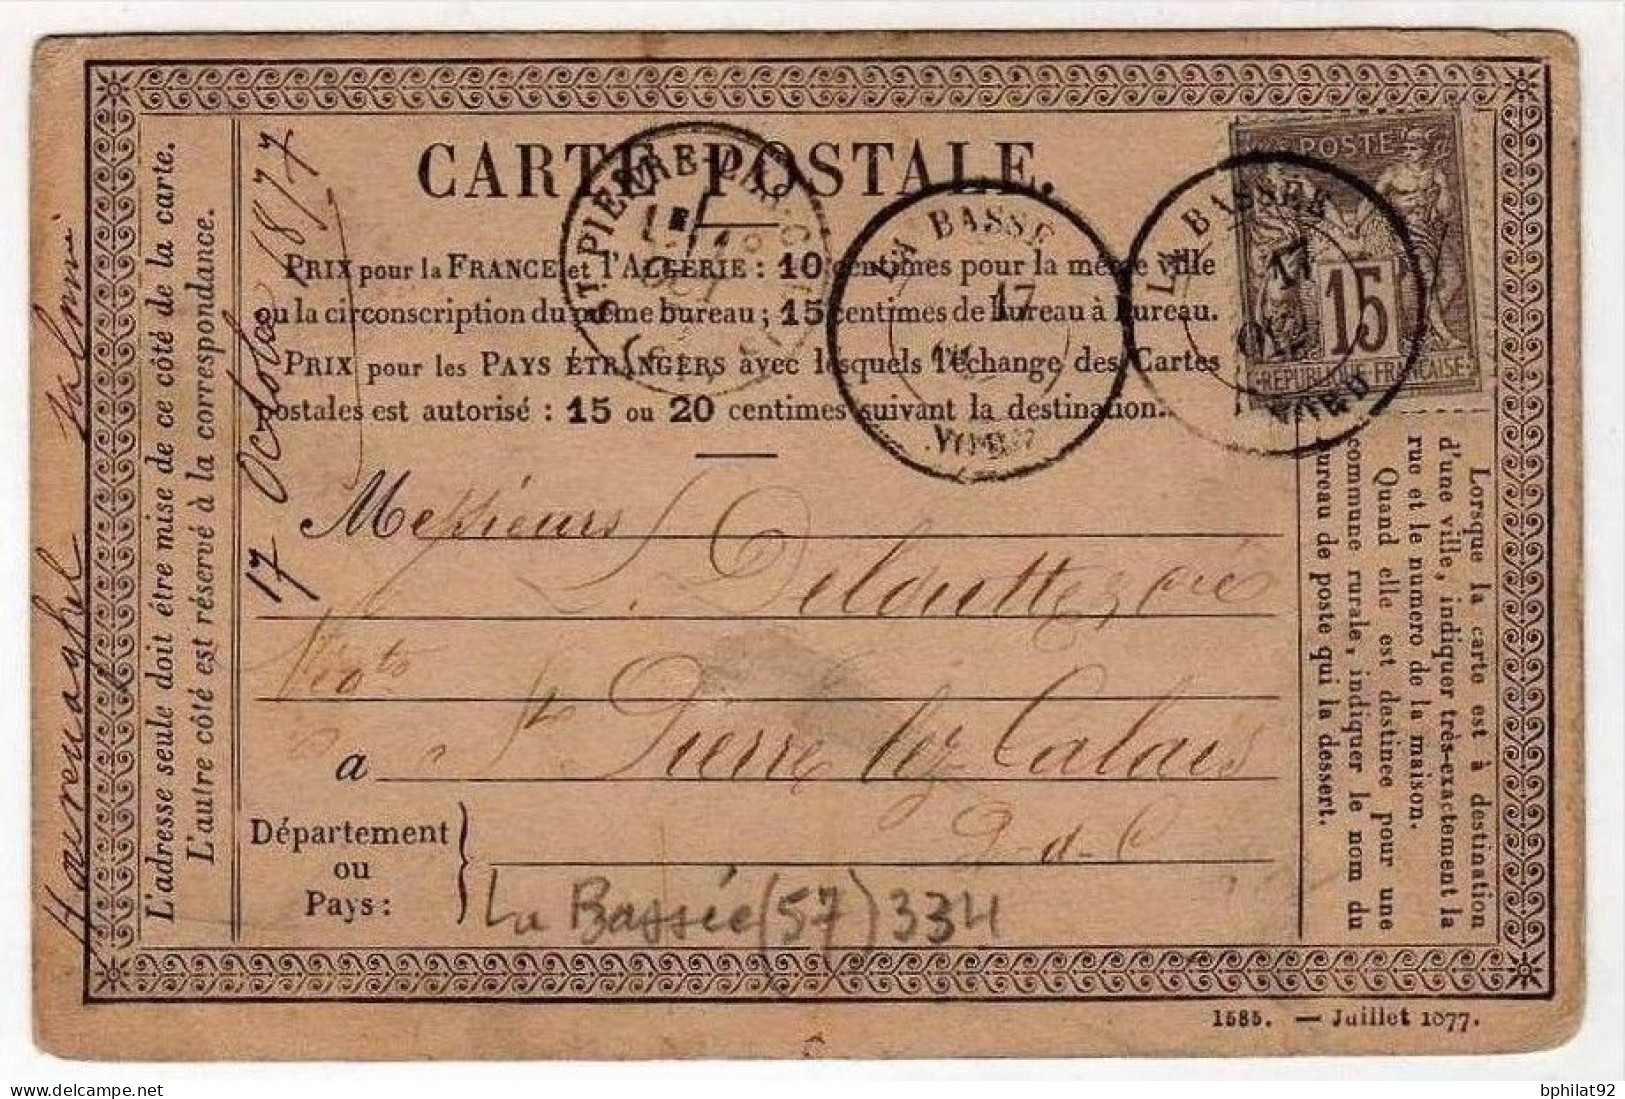 CARTE POSTALE.
PRIX pour la FRANCE et l'ALGÉRIE : 10 centimes pour la même ville
ou la circonscription du même bureau ; 15 centimes de bureau à bureau.
PRIX pour les PAYS ÉTRANGERS avec lesquels l'échange des Cartes
postales est autorisé : 15 ou 20 centimes suivant la destination.
POSTE
15
RÉPUBLIQUE FRANÇAISE
ST PIERRE-LES-C
OCT
LA BASSÉE
17
NORD
LA BASSÉE
17
OCT
NORD
Messieurs L. Delouttez
à St Pierre lez Calais
P-d-C
Département
ou
Pays :
La Bassée (57) 334
L'adresse seule doit être mise de ce côté de la carte.
L'autre côté est réservé à la correspondance.
17 Octobre 1877
Lorsque la carte est à destination
d'une ville, indiquer très-exactement la
rue et le numero de la maison.
Quand elle est destinee pour une
commune rurale, indiquer le nom du
bureau de poste qui la dessert.
1585. — Juillet 1877.
bphilat92